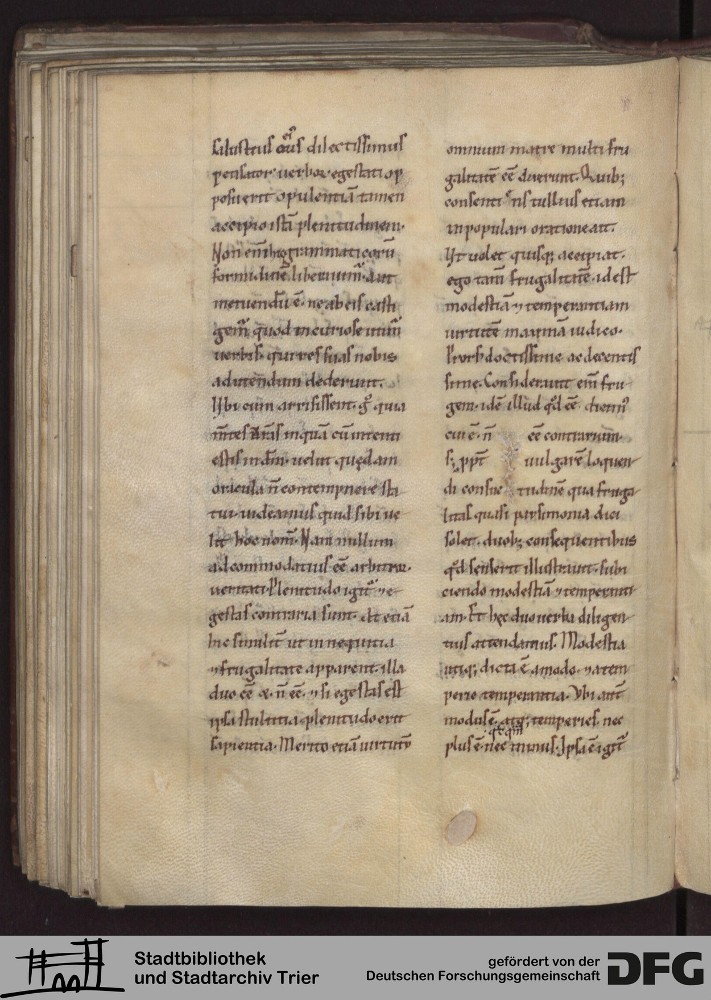 salustius e͂ı͂us dilectissimus
pensitor uerborū egestati op
posuerit opulentiā tamen
accipio istā plenitudinem.
Non eni hic grammaticorū
formidine liberium᷒. aut
metuendū ē. ne ab eis casti
gem᷒. quod incuriose utim᷒
uerbis. qui res suas nobis
ad utendum dederunt.
Ubi cum arrisissent. g̊ quia
m̄tes ur̄as inquā cū intenti
estis in dm̄. uelut quędam
oracula n̄ contempnere sta
tui. uideamus quid sibi ue
lit hoc nom̄. Nam nullum
ad commodatius eē arbitror
ueritati. Plenitudo igit᷒ ⁊ e
gestas contraria sunt. At etiā
hic similit̄ ut in nequitia
⁊ frugalitate apparent illa
duo eē & n̄ eē. ⁊ si egestas est
ipsa stultitia. plenitudo erit
sapientia. Merito etiā uirtutū
omnium matrē multi fru
galitatē eē dixerunt. Quib;
consentiens tullius etiam
in populari oratione ait.
Ut uolet quisq; accipiat.
ego tam̄ frugalitatē. id est
modestiā ⁊ temperantiam
uirtutē maximā iudico.
Prors᷒ doctissime ac decentis
sime. Considerauit eni fru
gem. idē illud qd̄ eē dicim᷒
cui ē. n̄ eē contrarium.
S; ppt̄ uulgarē loquen
di consue tudinē qua fruga
litas quasi parsimonia dici
solet. duob; consequentibus
qd̄ senserit illustrauit. subi
ciendo modestiā ⁊ temperanti
am. Et hęc duo uerba diligen
tius attendamus. Modestia
utiq; dicta ē a modo. ⁊ a tem
perie temperantia. Ubi aut̄
modus ē. atq; temperies. nec
plus ē. nec minus. Ipsa ē igit᷒
Stadtbibliothek
und Stadtarchiv Trier
gefördert von der
Deutschen Forschungsgemeinschaft
DFG